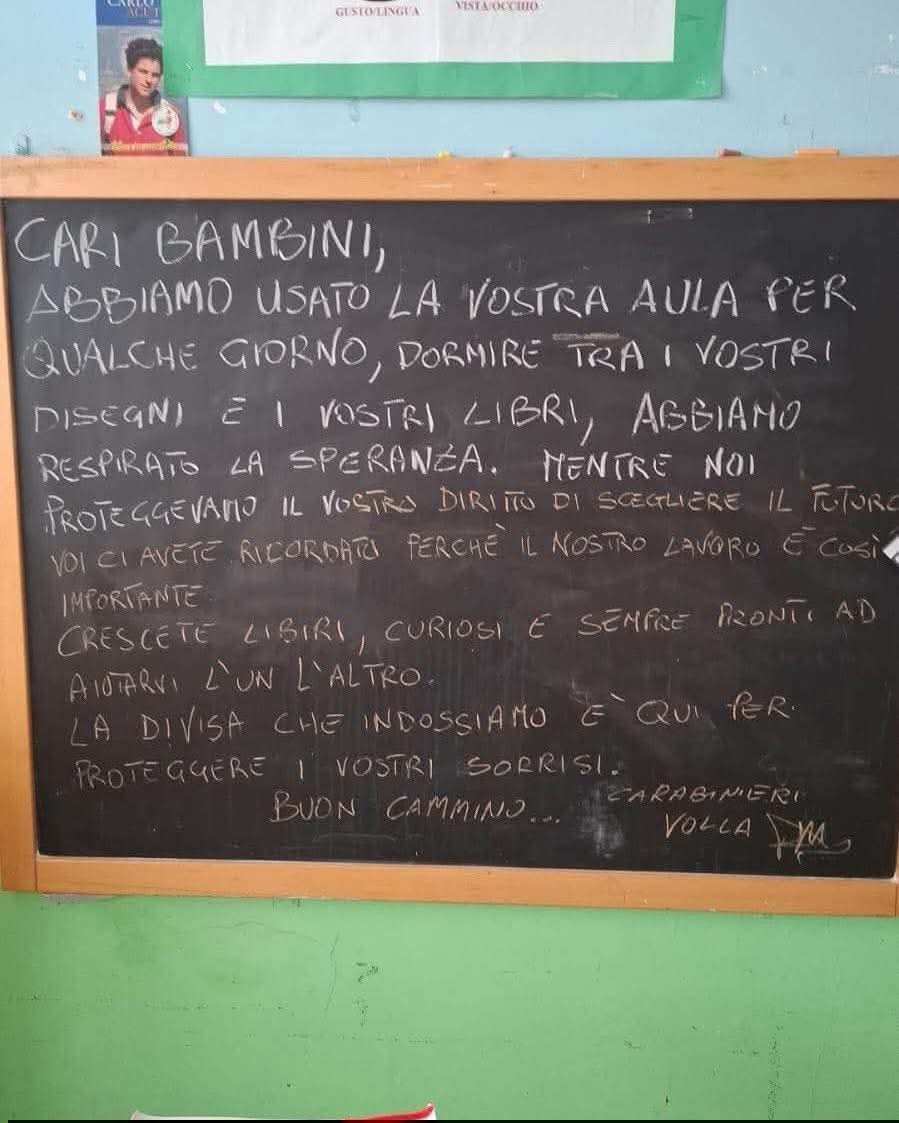 CARLO
GUSTO/LINGUA VISTA/OCCHIO
CARI BAMBINI,
ABBIAMO USATO LA VOSTRA AULA PER
QUALCHE GIORNO, DORMIRE TRA I VOSTRI
DISEGNI E I VOSTRI LIBRI, ABBIAMO
RESPIRATO LA SPERANZA. MENTRE NOI
PROTEGGEVAMO IL VOSTRO DIRITTO DI SCEGLIERE IL FUTURO
VOI CI AVETE RICORDATO PERCHÈ IL NOSTRO LAVORO È COSÌ
IMPORTANTE.
CRESCETE LIBIRI, CURIOSI E SEMPRE PRONTI AD
AIUTARVI L'UN L'ALTRO.
LA DIVISA CHE INDOSSIAMO E' QUI PER
PROTEGGERE I VOSTRI SORRISI.
BUON CAMMINO...
CARABINIERI
VOLLA